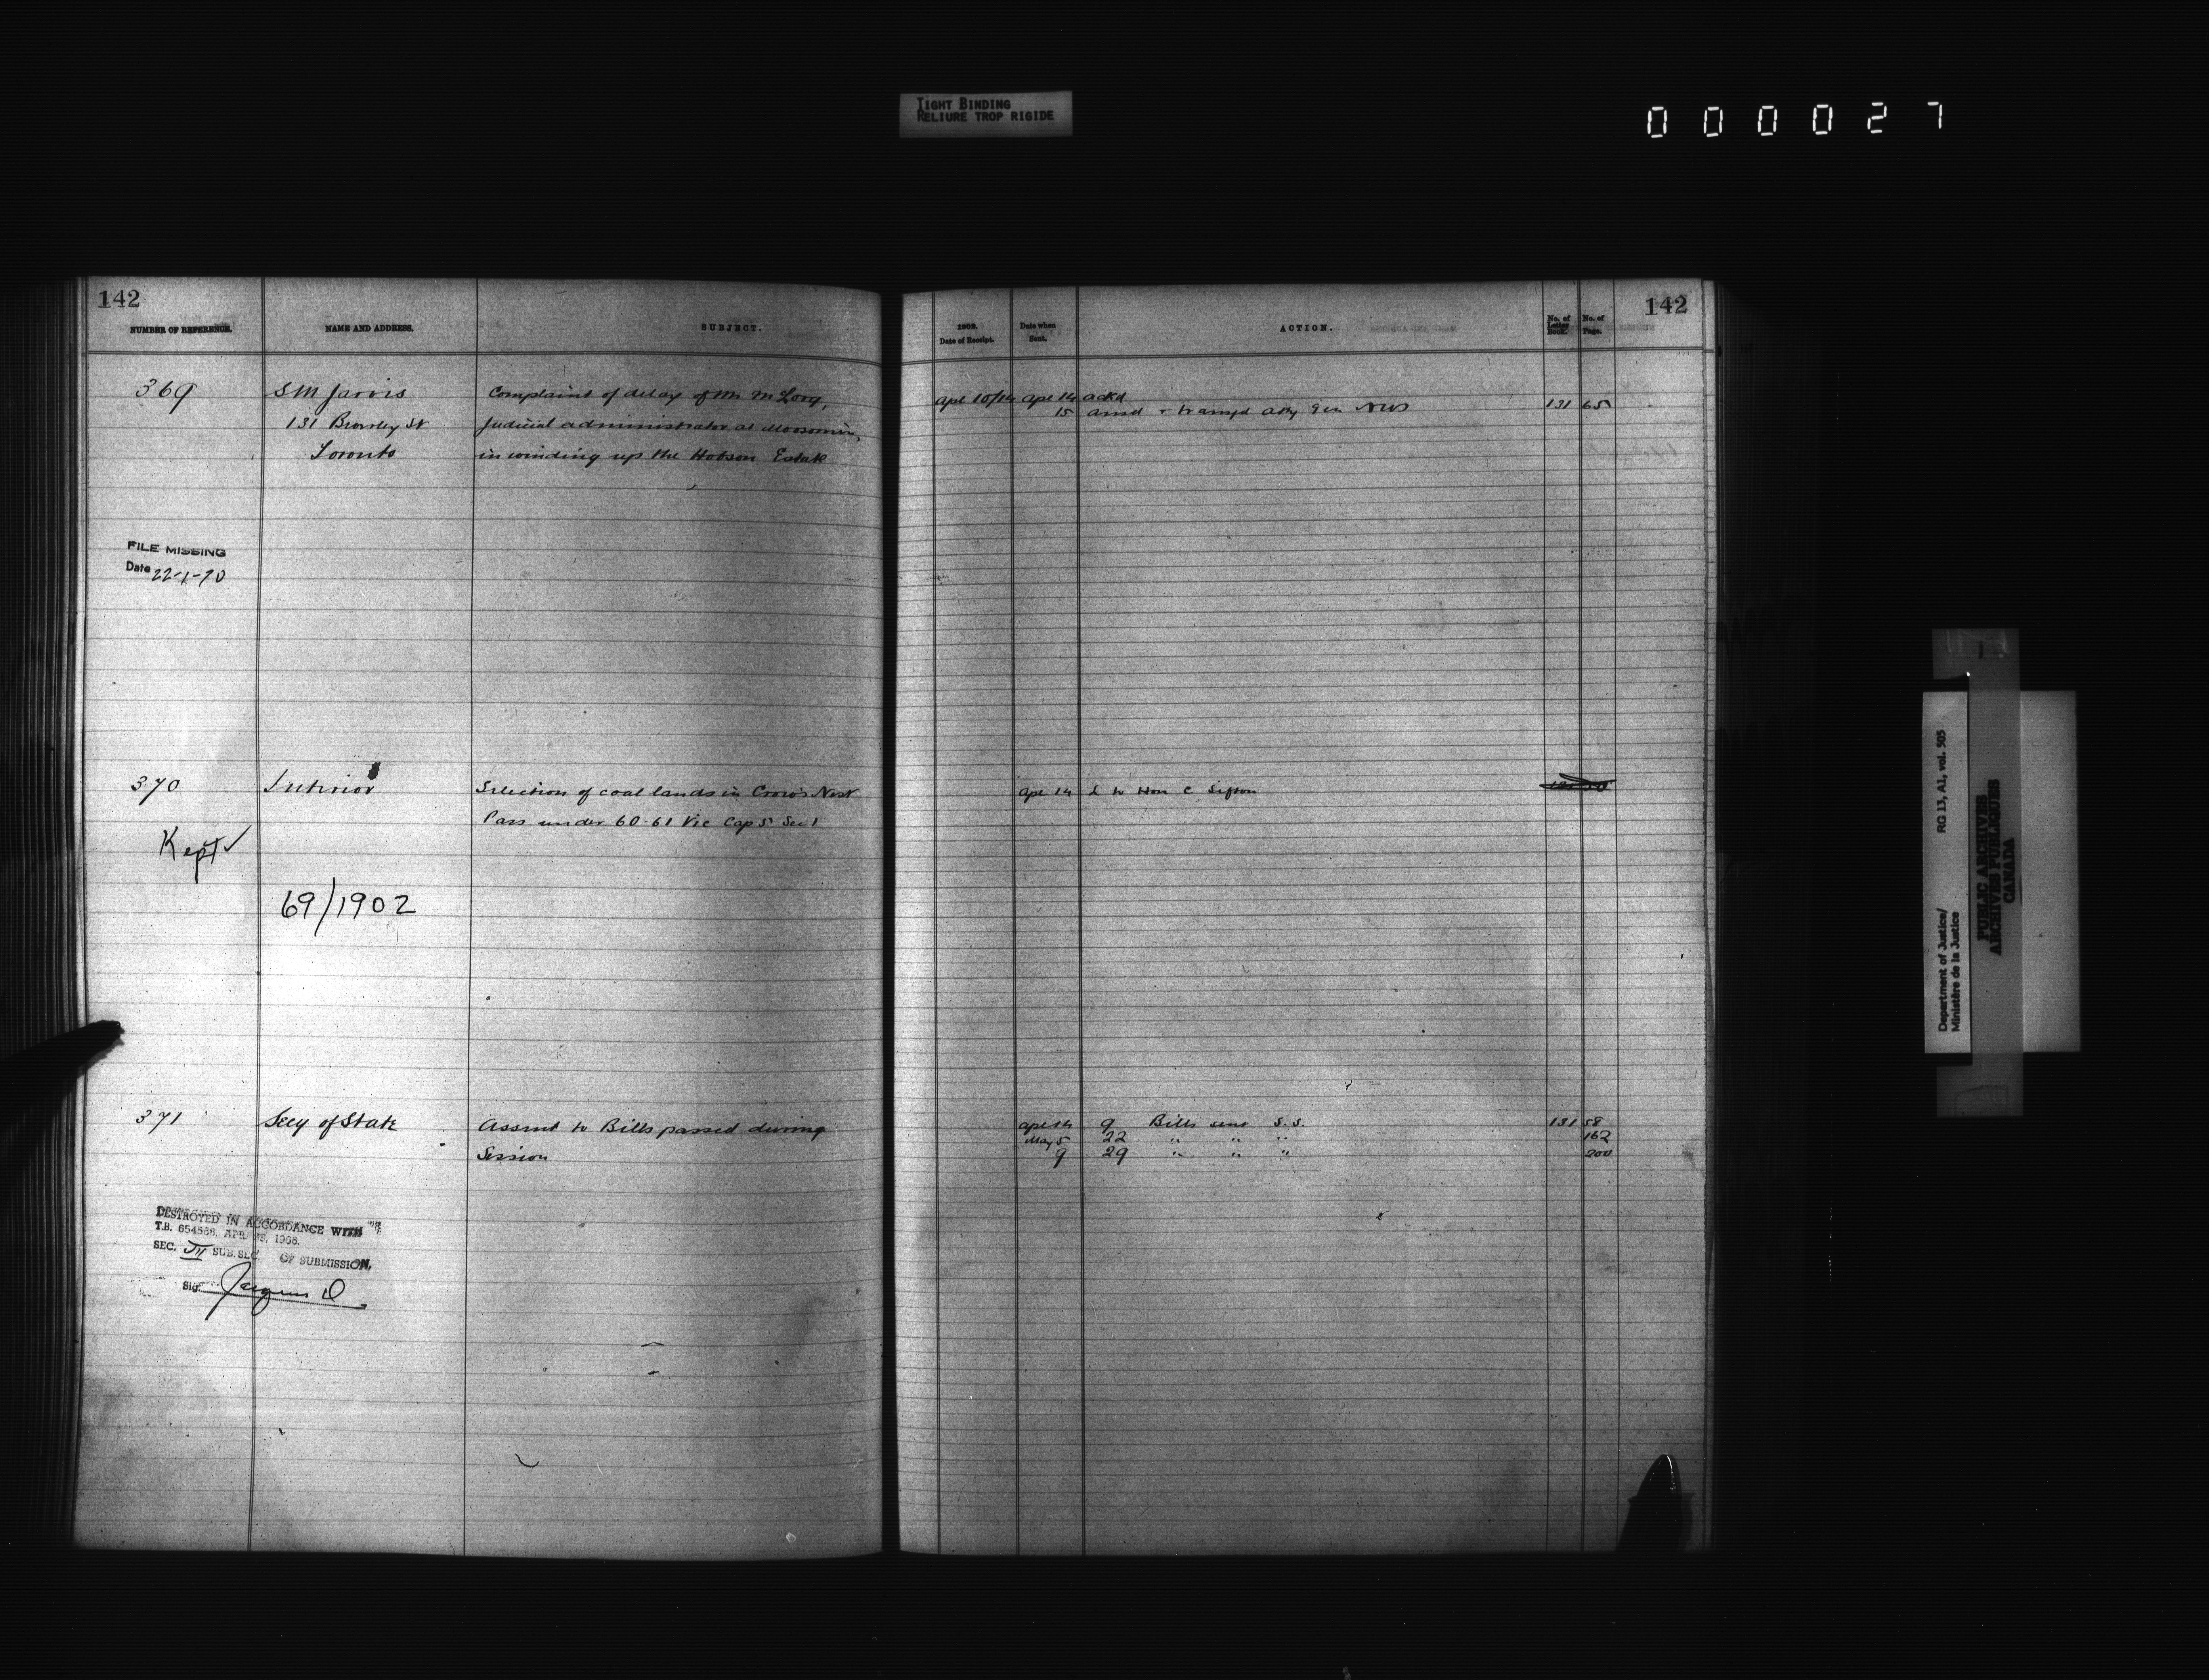 TIGHT BINDING
RELIURE TROP RIGIDE
000027
142
NUMBER OF REFERENCE.
NAME AND ADDRESS.
SUBJECT.
369
S M Jarvis
131 St
Toronto
Complaint of delay of Mr
Judicial administrator at Moosomin,
in winding up the Hobson Estate
FILE MISSING
Date 22-1-70
370
Interior
Selection of coal lands in Crow's Nest
Pass under 60-61 Vic Cap 5 Sec 1
Kept ✓
69/1902
371
Secy of State
Assent to Bills passed during
Session
DESTROYED IN ACCORDANCE WITH
T.B. 654368, APR. 1966.
SEC. SUB. SEC. OF SUBMISSION,
Sig.
142
1902.
Date of Receipt.
Date when
Sent.
ACTION.
No. of
Letter
Book.
No. of
Page.
Apl 10/14 Apl 14 ackd
15 ansd + Atty Gen NWT 131 65
Apl 14 L to Hon C Sifton
Apl 14 9 Bills sent S.S. 131 58
May 5 22 " " " 162
9 29 " " " 200
Department of Justice/
Ministère de la Justice
RG 13, A1, vol. 505
PUBLIC ARCHIVES
ARCHIVES PUBLIQUES
CANADA